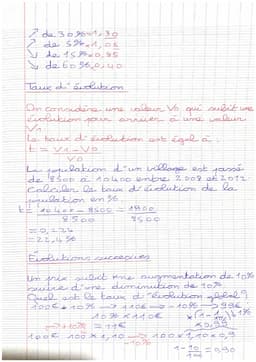 ↗ de 30%=1,30
↗ de 5%=1,05
↘ de 15%=0,85
↘ de 60%=0,40
Taux d'évolution
On considère une valeur V0 qui subit une
évolution pour arriver à une valeur
V1.
Le taux d'évolution est égal à :
t = V1-V0
V0
La population d'un village est passé
de 8500 à 10400 entre 2008 et 2012
Calculer le taux d'évolution de la
population en %.
t= 10400-8500 = 1900
8500 8500
=0,224
=22,4%
Évolutions successives
Un prix subit une augmentation de 10%
suivie d'une diminution de 10%
Quel est le taux d'évolution global?
100€ +10% → 110€ → -10% → 99€
10% × 110€
= 11€
+10%
-10%
100€ 100×1,10 100×1,10×0,9
1-10 =0,90
100